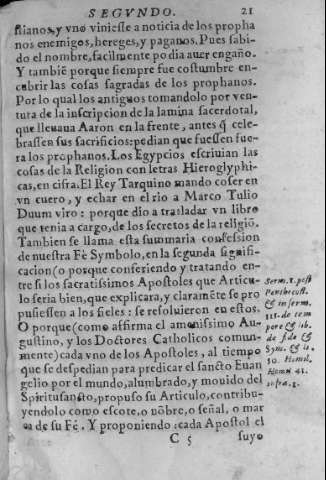 SEGVNDO. 21
stianos, y vno viniesse a noticia de los propha
nos enemigos, hereges, y paganos. Pues sabi-
do el nombre, facilmente podia auer engaño.
Y tambiẽ porque siempre fue costumbre en-
cubrir las cosas sagradas de los prophanos.
Por lo qual los antiguos tomandolo por ven-
tura de la inscripcion de la lamina sacerdotal,
que lleuaua Aaron en la frente, antes q̃ cele-
brassen sus sacrificios: pedian que fuessen fue-
ra los prophanos. Los Egypcios escriuian las
cosas de la Religion con letras Hieroglyphi-
cas, en cifra. El Rey Tarquino mando coser en
vn cuero, y echar en el rio a Marco Tulio
Duum viro: porque dio a trasladar vn libro
que tenia a cargo, de los secretos de la religiõ.
Tambien se llama esta summaria confession
de nuestra Fè Symbolo, en la segunda signifi-
cacion (o porque confiriendo y tratando en-
tre si los sacratissimos Apostoles que Articu-
lo seria bien, que explicara, y claramẽte se pro
pusiessen a los fieles: se resoluieron en estos.
O porque (como affirma el amenissimo Au-
gustino, y los Doctores Catholicos comun-
mente) cada vno de los Apostoles, al tiempo
que se despedian para predicar el sancto Euan
gelio por el mundo, alumbrado, y mouido del
Spiritusancto, propuso su Articulo, contribu-
yendolo como escote, o nõbre, o señal, o mar
ca de su Fé. Y proponiendo: cada Apostol el
C 5 suyo
Serm. 1. post
Penthecost.
& in serm.
115. de tem
pore & lib.
de fide &
Sym. &
50. Homil.
Homi. 42.